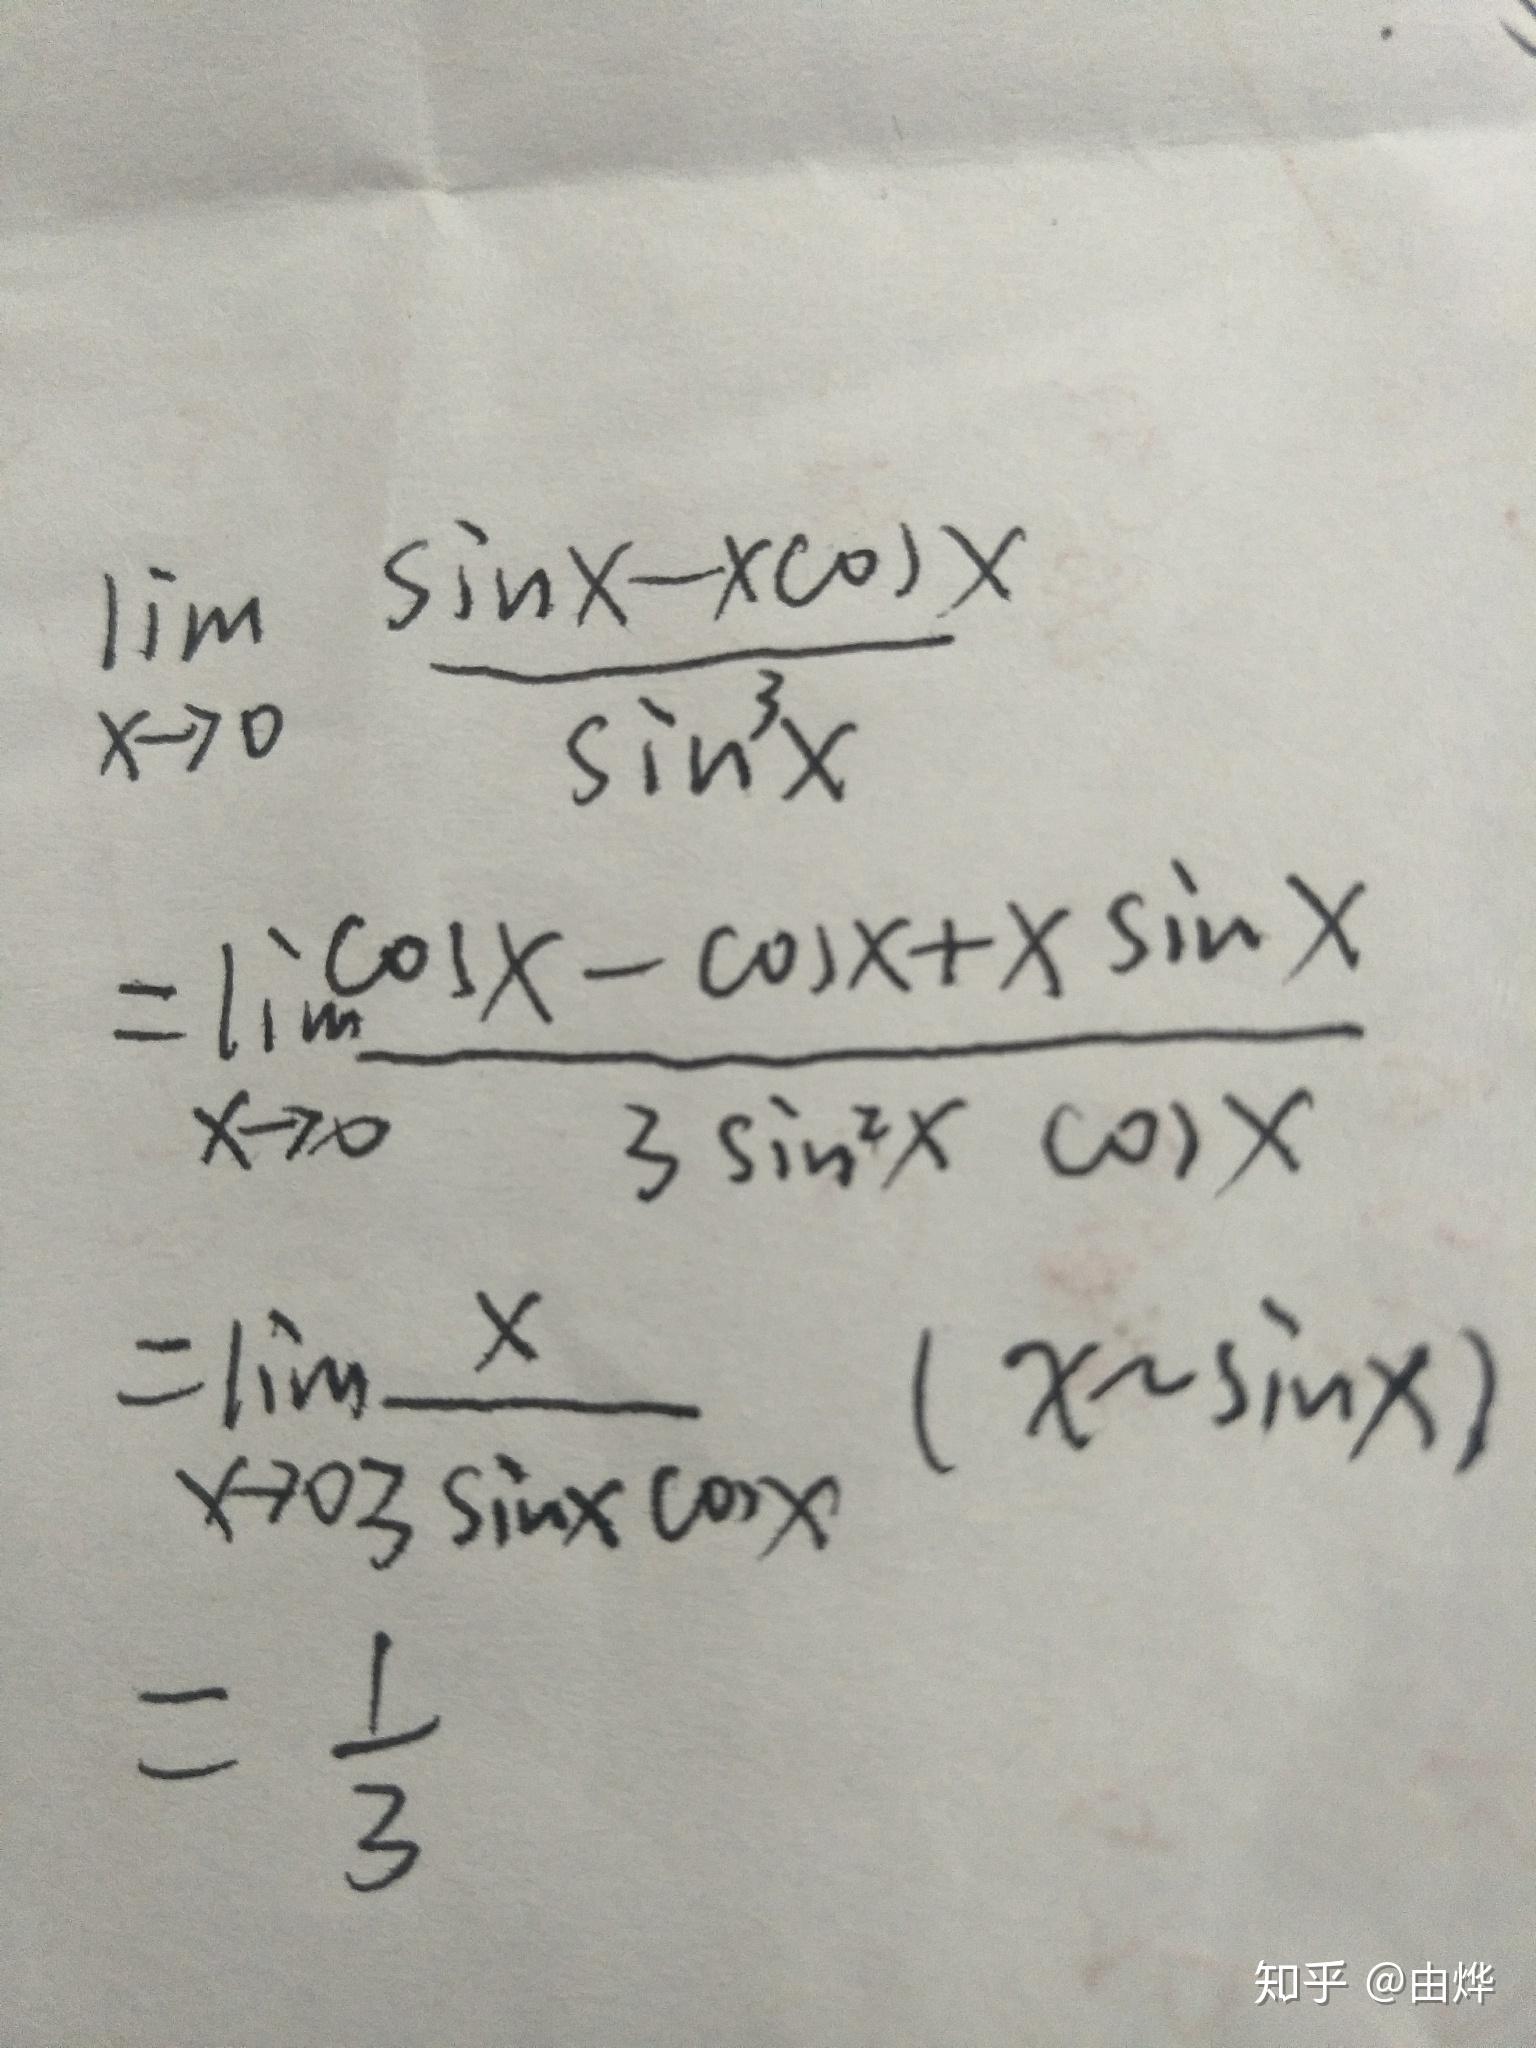 lim sinx-xcosx / sin³x
x→0
=lim cosx-cosx+x sinx / 3 sin²x cosx
x→0
=lim x / 3 sinx cosx (x~sinx)
x→0
= 1/3
知乎 @由烨